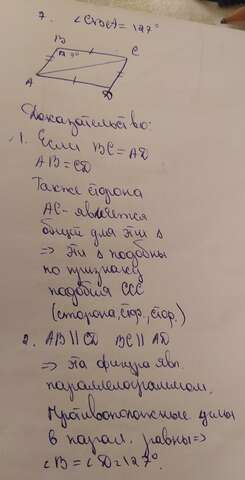 7. ∠CDA = 127°
B
C
A
D
Доказательство:
1. Если BC = AD
AB = CD
Также сторона
AC - является
общей для эти s
=> эти s подобны
по признаку
подобия ССС
(сторона, стор., стор.)
2. AB || CD BC || AD
=> эта фигура явл.
параллелограммом.
Противоположные углы
в парал. равны =>
∠B = ∠D = 127°.